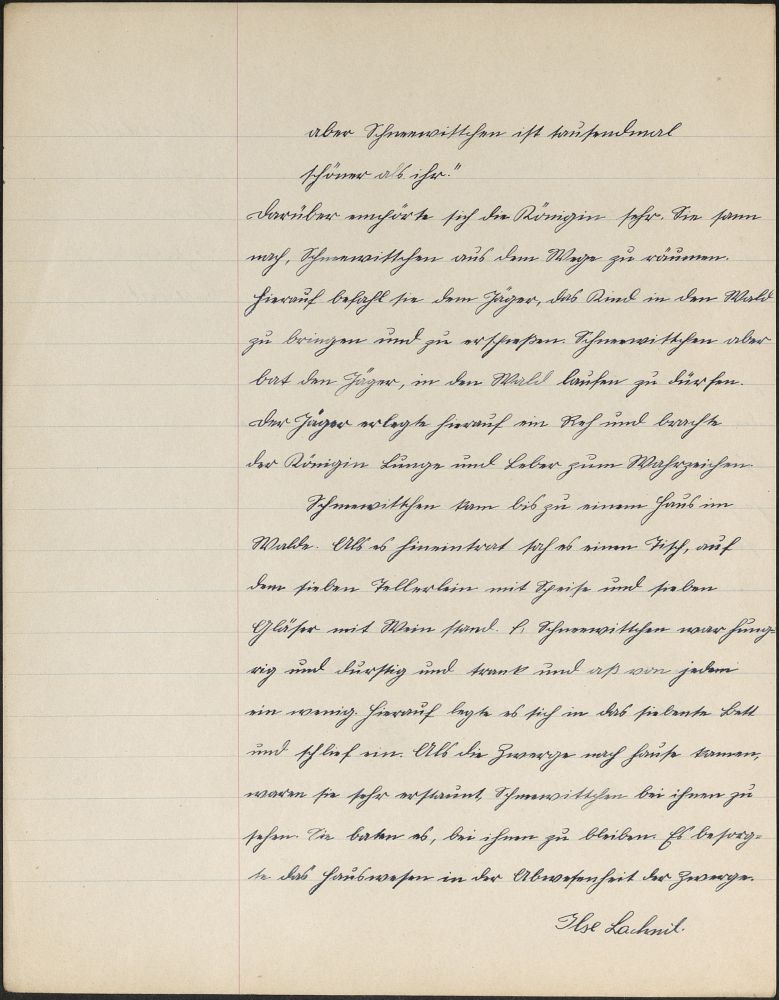 aber Schneewittchen ist tausendmal
schöner als ihr."
Darüber empörte sich die Königin sehr. Sie sann
nach, Schneewittchen aus dem Wege zu räumen.
Hierauf befahl sie dem Jäger, das Kind in den Wald
zu bringen und zu erschießen. Schneewittchen aber
bat den Jäger, in den Wald laufen zu dürfen.
Der Jäger erlegte hierauf ein Reh und brachte
der Königin Lunge und Leber zum Wahrzeichen.
Schneewittchen kam bis zu einem Haus im
Walde. Als es hineintrat sah es einen Tisch, auf
dem sieben Tellerlein mit Speise und sieben
Gläser mit Wein stand. Schneewittchen war hung-
rig und durstig und trank und aß von jedem
ein wenig. Hierauf legte es sich in das siebente Bett
und schlief ein. Als die Zwerge nach Hause kamen,
waren sie sehr erstaunt, Schneewittchen bei ihnen zu
sehen. Sie baten es, bei ihnen zu bleiben. Es besorg-
te das Hauswesen in der Abwesenheit der Zwerge.
Ilse Lachnit.